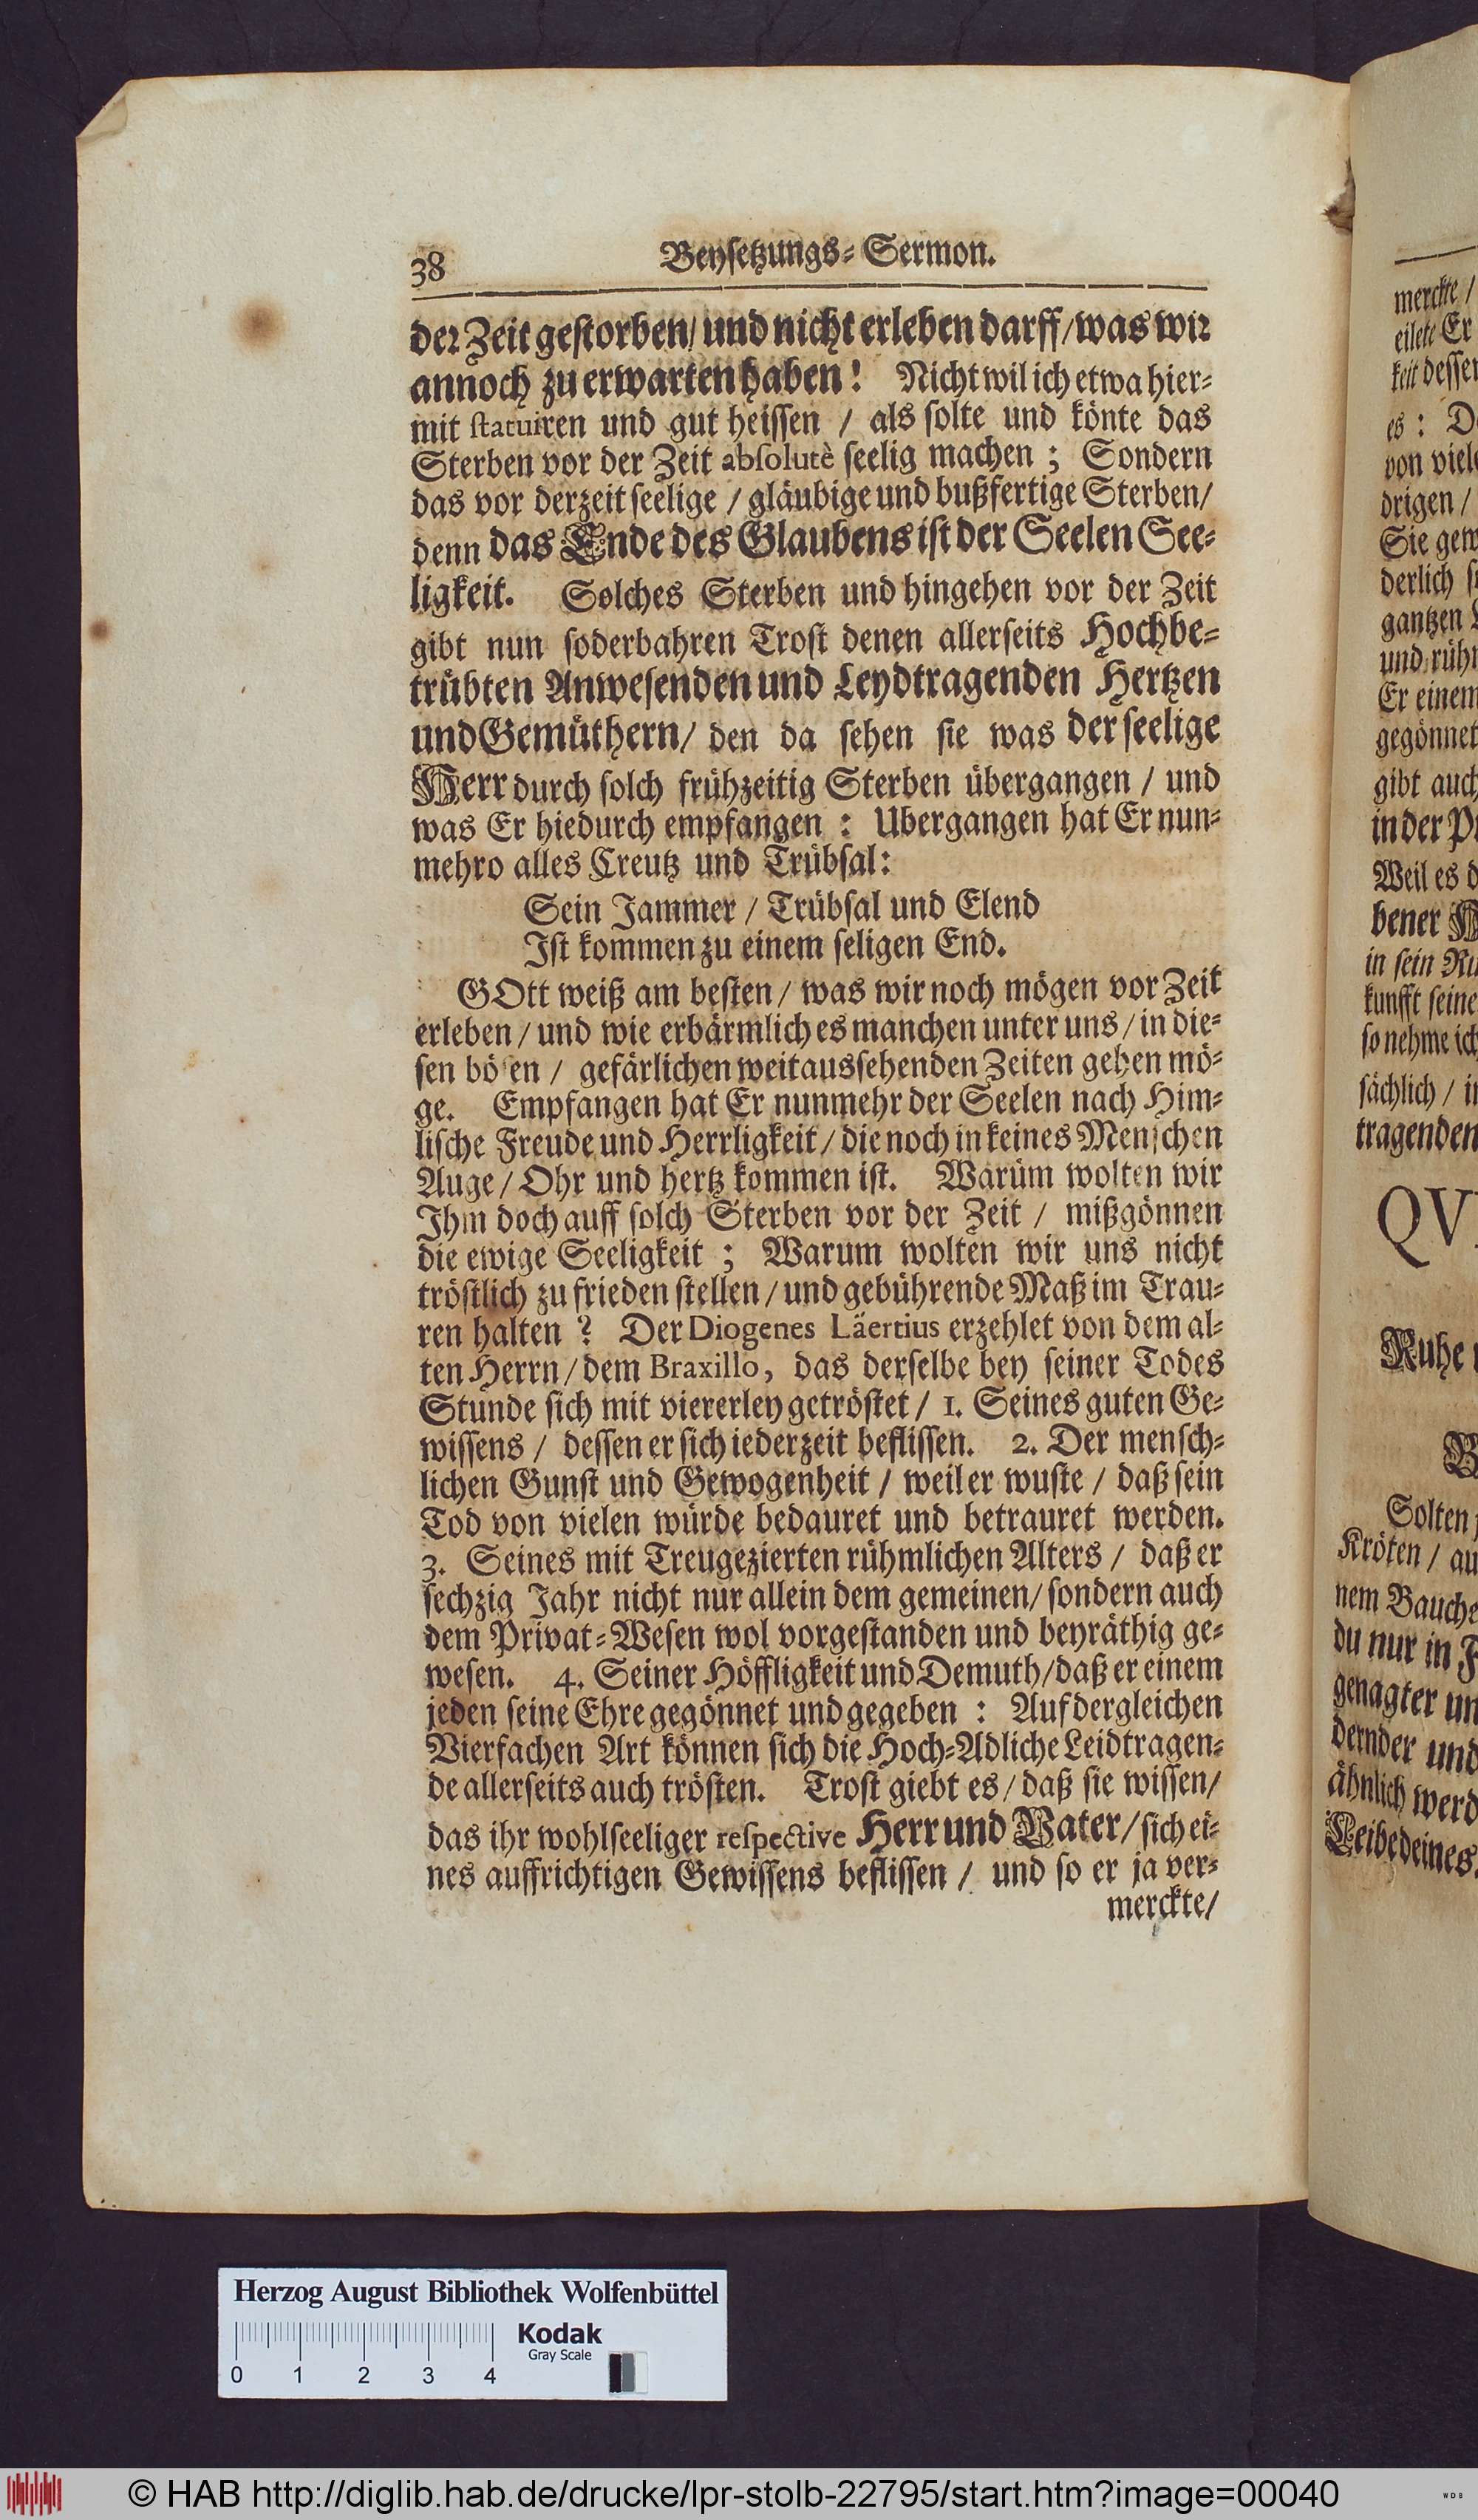 38
Beysetzungs-Sermon.
der Zeit gestorben/ und nicht erleben darff/ was wir
annoch zu erwarten haben! Nicht wil ich etwa hier-
mit statuiren und gut heissen / als solte und könte das
Sterben vor der Zeit absolutè seelig machen ; Sondern
das vor der zeit seelige / gläubige und bußfertige Sterben/
denn das Ende des Glaubens ist der Seelen See-
ligkeit. Solches Sterben und hingehen vor der Zeit
gibt nun soderbahren Trost denen allerseits Hochbe-
trübten Anwesenden und Leydtragenden Hertzen
und Gemüthern/ den da sehen sie was der seelige
Herr durch solch frühzeitig Sterben übergangen / und
was Er hiedurch empfangen : Ubergangen hat Er nun-
mehro alles Creutz und Trübsal:
Sein Jammer / Trübsal und Elend
Ist kommen zu einem seligen End.
GOtt weiß am besten / was wir noch mögen vor Zeit
erleben / und wie erbärmlich es manchen unter uns / in die-
sen bösen / gefärlichen weitaussehenden Zeiten gehen mö-
ge. Empfangen hat Er nunmehr der Seelen nach Him-
lische Freude und Herrligkeit / die noch in keines Menschen
Auge / Ohr und hertz kommen ist. Warüm wolten wir
Ihm doch auff solch Sterben vor der Zeit / mißgönnen
die ewige Seeligkeit ; Warum wolten wir uns nicht
tröstlich zu frieden stellen / und gebührende Maß im Trau-
ren halten ? Der Diogenes Läertius erzehlet von dem al-
ten Herrn / dem Braxillo, das derselbe bey seiner Todes
Stunde sich mit viererley getröstet / 1. Seines guten Ge-
wissens / dessen er sich iederzeit beflissen. 2. Der mensch-
lichen Gunst und Gewogenheit / weil er wuste / daß sein
Tod von vielen würde bedauret und betrauret werden.
3. Seines mit Treu gezierten rühmlichen Alters / daß er
sechzig Jahr nicht nur allein dem gemeinen/ sondern auch
dem Privat-Wesen wol vorgestanden und beyräthig ge-
wesen. 4. Seiner Höffligkeit und Demuth/ daß er einem
jeden seine Ehre gegönnet und gegeben : Auf dergleichen
Vierfachen Art können sich die Hoch-Adliche Leidtragen-
de allerseits auch trösten. Trost giebt es / daß sie wissen/
das ihr wohlseeliger respective Herr und Vater/ sich ei-
nes auffrichtigen Gewissens beflissen / und so er ja ver-
merckte/
merckte /
eilete Er
keit dessen
es : D
von viel
drigen /
Sie gew
derlich
gantzen
und rüh
Er einem
gegönnet
gibt auch
in der P
Weil es d
bener H
in sein Ru
kunfft seine
so nehme ich
sächlich / in
tragenden
QV
Ruhe
Solten
Kröten / au
nem Bauche
du nur in F
genagter un
dernder und
ähnlich werd
Leibe deines
Herzog August Bibliothek Wolfenbüttel
Kodak
Gray Scale
0 1 2 3 4
© HAB http://diglib.hab.de/drucke/lpr-stolb-22795/start.htm?image=00040
WDB